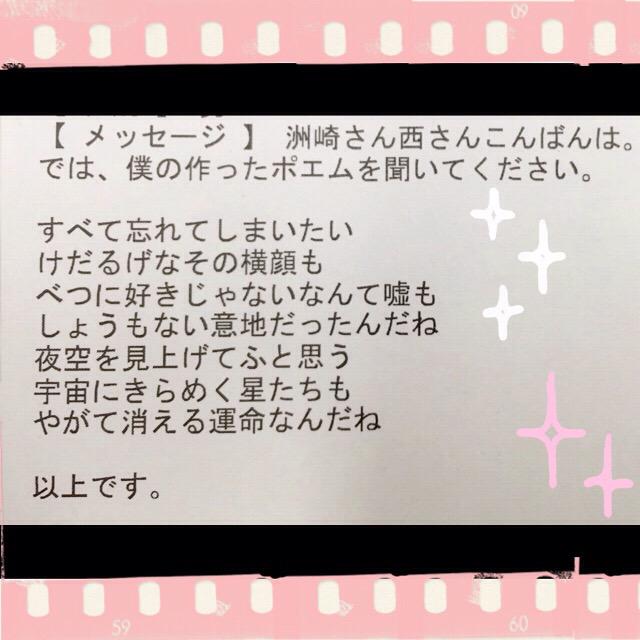 09
【 メッセージ 】 洲崎さん西さんこんばんは。
では、僕の作ったポエムを聞いてください。
すべて忘れてしまいたい
けだるげなその横顔も
べつに好きじゃないなんて嘘も
しょうもない意地だったんだね
夜空を見上げてふと思う
宇宙にきらめく星たちも
やがて消える運命なんだね
以上です。
59 60